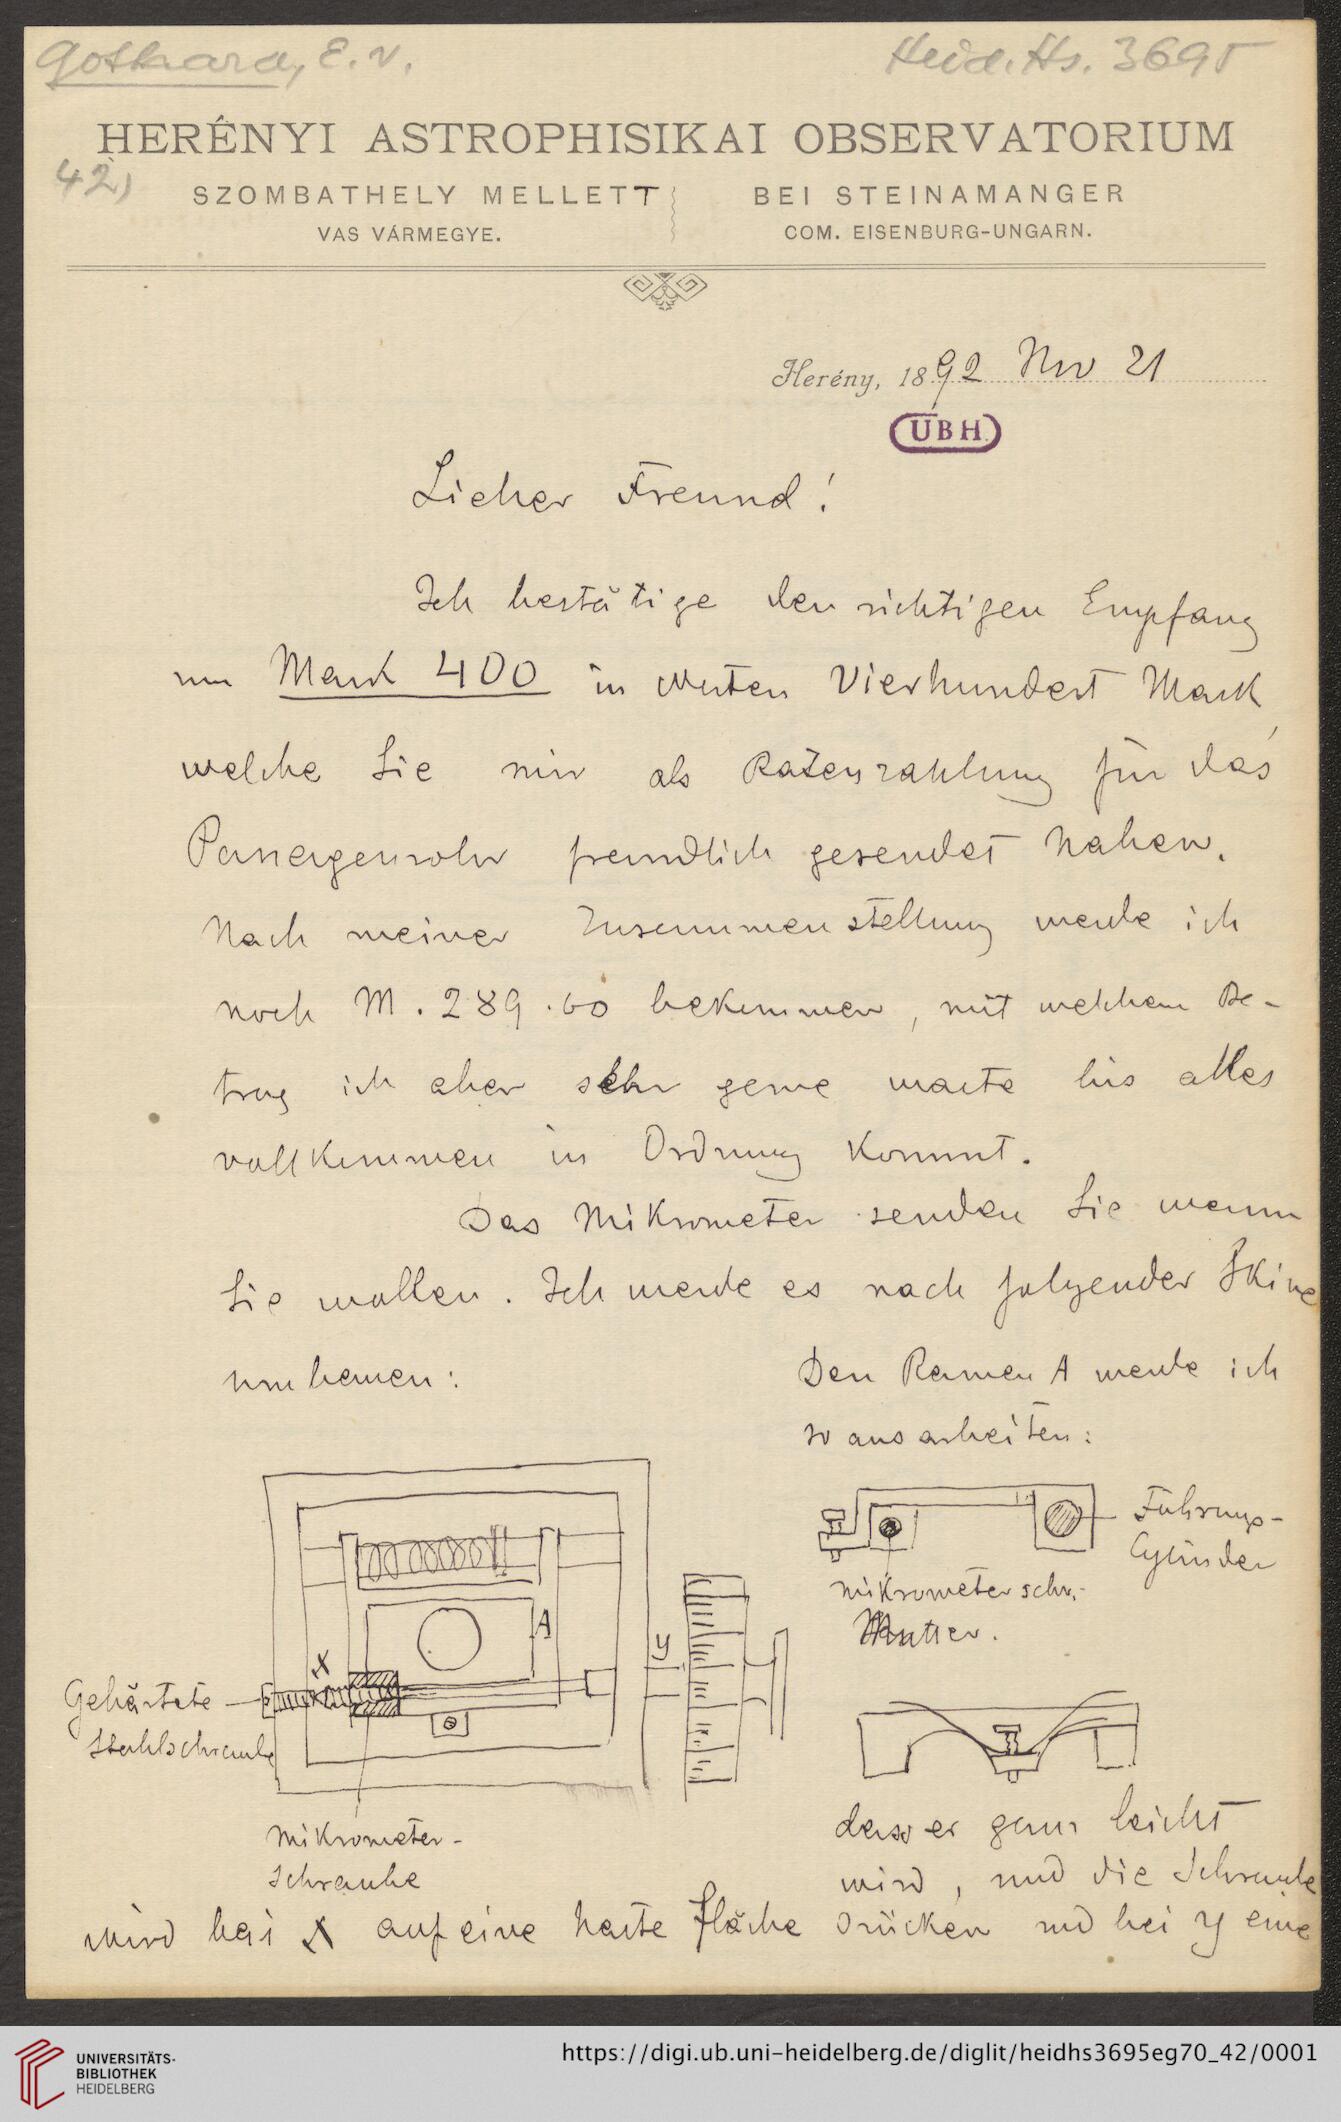 Gothard, E. v.
Heid. Hs. 3695
HERÉNYI ASTROPHISIKAI OBSERVATORIUM
42)
SZOMBATHELY MELLETT
VAS VÁRMEGYE.
BEI STEINAMANGER
COM. EISENBURG-UNGARN.
Herény, 1892 Nov 21
UBH
Lieber Freund!
Ich bestätige den richtigen Empfang
von Mark 400 in Worten Vierhundert Mark,
welche Sie mir als Ratenzahlung für das
Passagenrohr freundlich gesendet haben.
Nach meiner Zusammenstellung werde ich
noch M. 289.60 bekommen, mit welchem Be-
trag ich aber sehr gerne warte bis alles
vollkommen in Ordnung kommt.
Das Mikrometer senden Sie wenn
Sie wollen. Ich werde es nach folgender Skize
umbauen:
Den Ramen A werde ich
so ausarbeiten:
Führungs-
Cylinder
Mikrometerschr.-
Mutter.
A
X
y
Gehärtete
Stahlschraube
Mikrometer-
Schraube
dass er ganz leicht
wird, und die Schraube
wird bei X auf eine harte Fläche drücken und bei y eine
UNIVERSITÄTS-
BIBLIOTHEK
HEIDELBERG
https://digi.ub.uni-heidelberg.de/diglit/heidhs3695eg70_42/0001